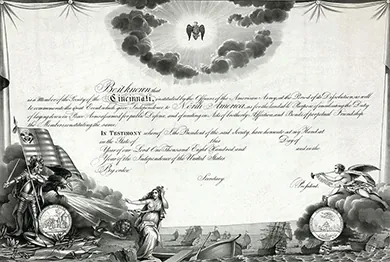 Be it known that
is a Member of the Society of the Cincinnati; instituted by the Officers of the American Army, at the Period of its Dissolution, as well
to commemorate the great Event which gave Independence to North America, as for the laudable Purpose of inculcating the Duty
of laying down in Peace Arms assumed for public Defence, and of uniting in Acts of brotherly Affection and Bonds of perpetual Friendship
the Members constituting the same.
IN TESTIMONY whereof I, the President of the said Society, have hereunto set my Hand at
in the State of this Day of
Year of our Lord One Thousand Eight Hundred and and in the
Year of the Independence of the United States.
By order,
Secretary. President.